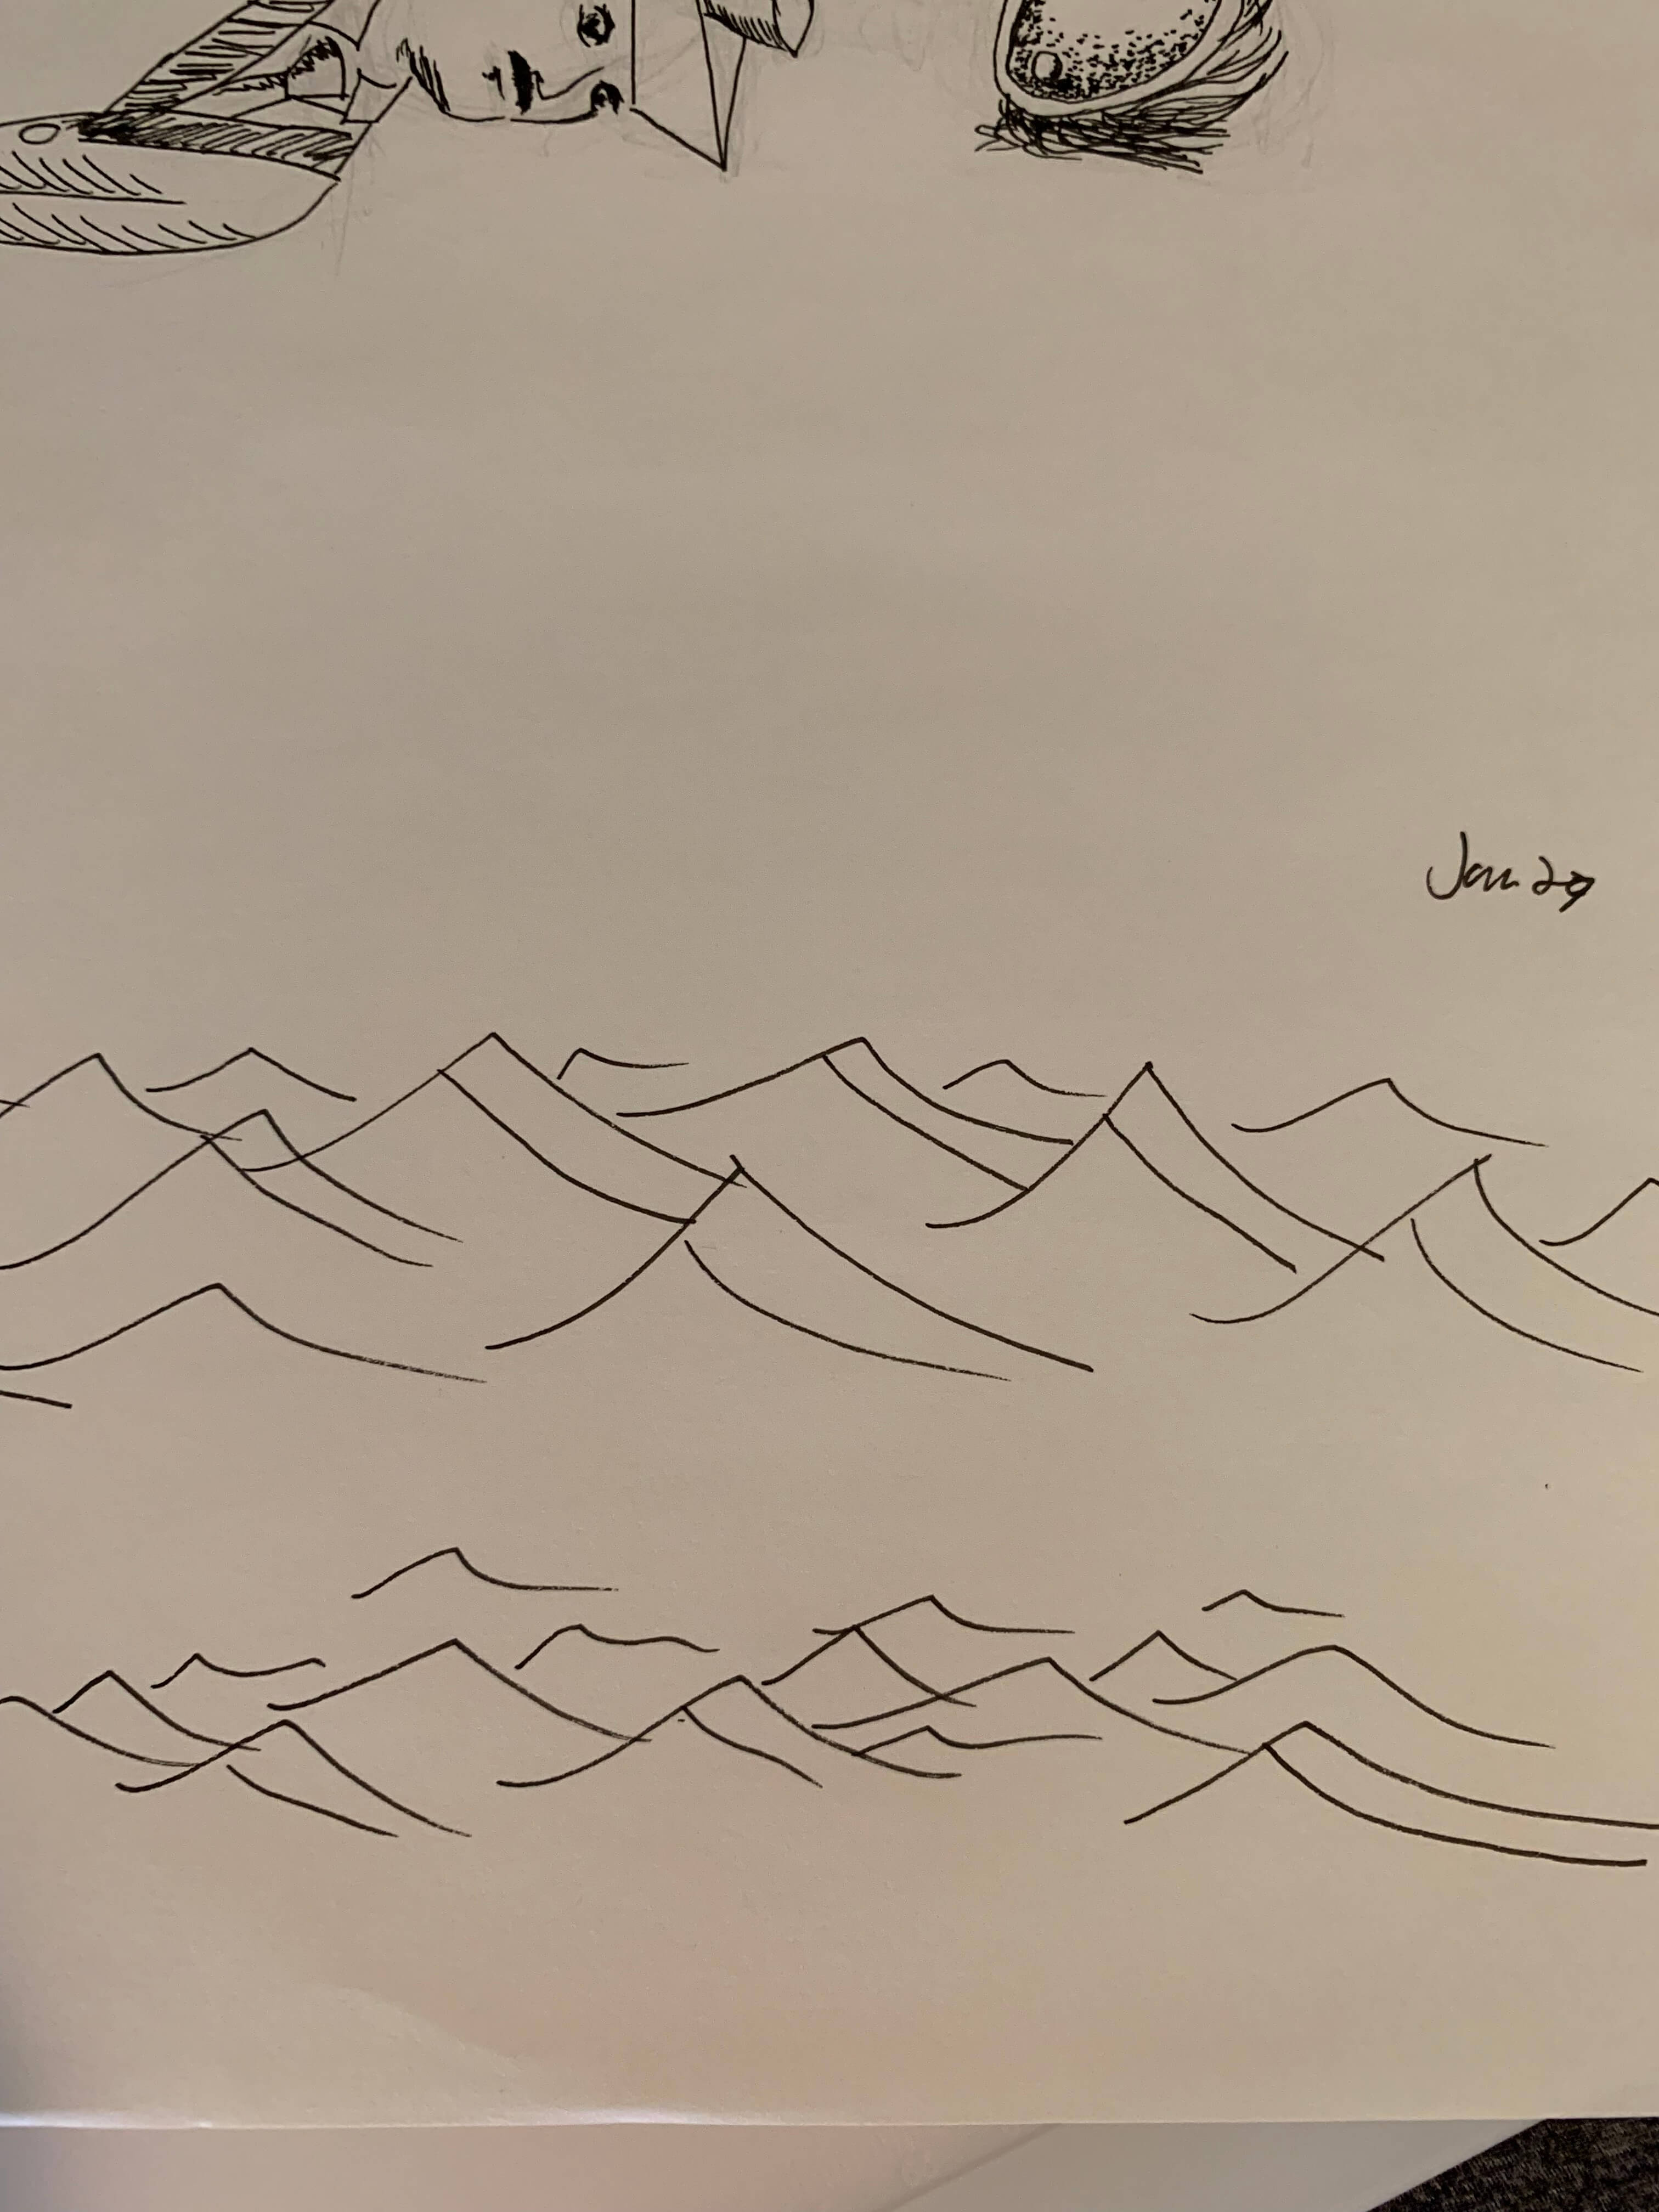 Jan 29